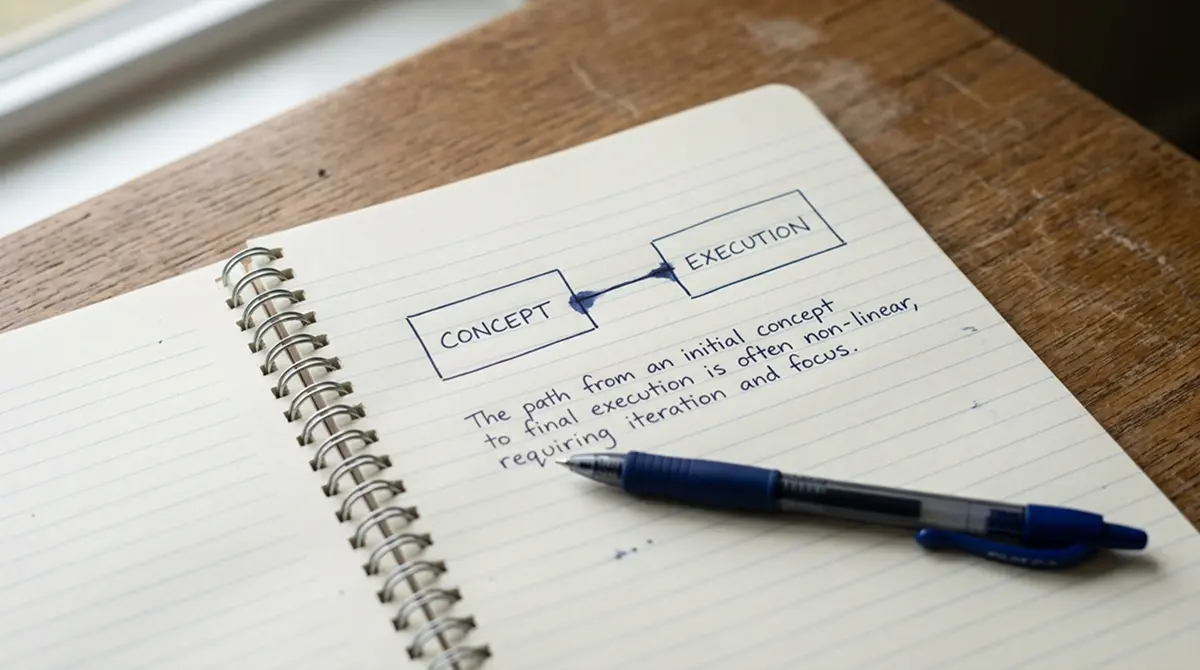 CONCEPT
EXECUTION
The path from an initial concept
to final execution is often non-linear,
requiring iteration and focus.